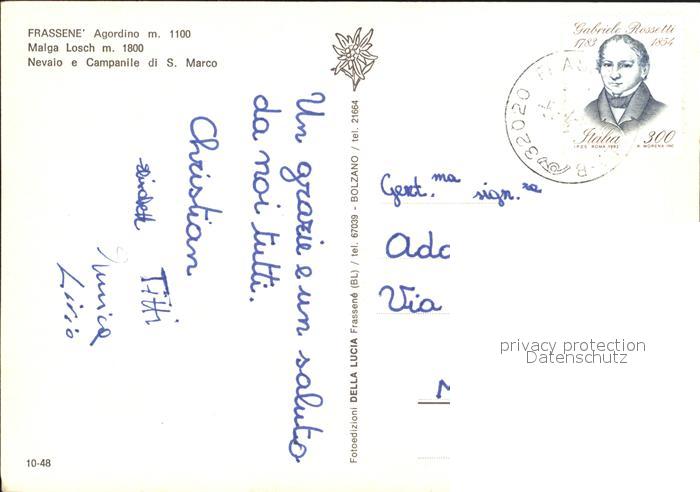 FRASSENE' Agordino m. 1100
Malga Losch m. 1800
Nevaio e Campanile di S. Marco
Un grazie e un saluto
da noi tutti.
Christian
Titti
Livio
10-48
Fotoedizioni DELLA LUCIA Frassené (BL) / tel. 67039 - BOLZANO / tel. 21664
Gabriele Rossetti
1783 1854
Italia 300
I.P.Z.S. ROMA 1983 R. MORENA INC.
32020
Gent.ma sign.ra
Ado
Via
privacy protection
Datenschutz